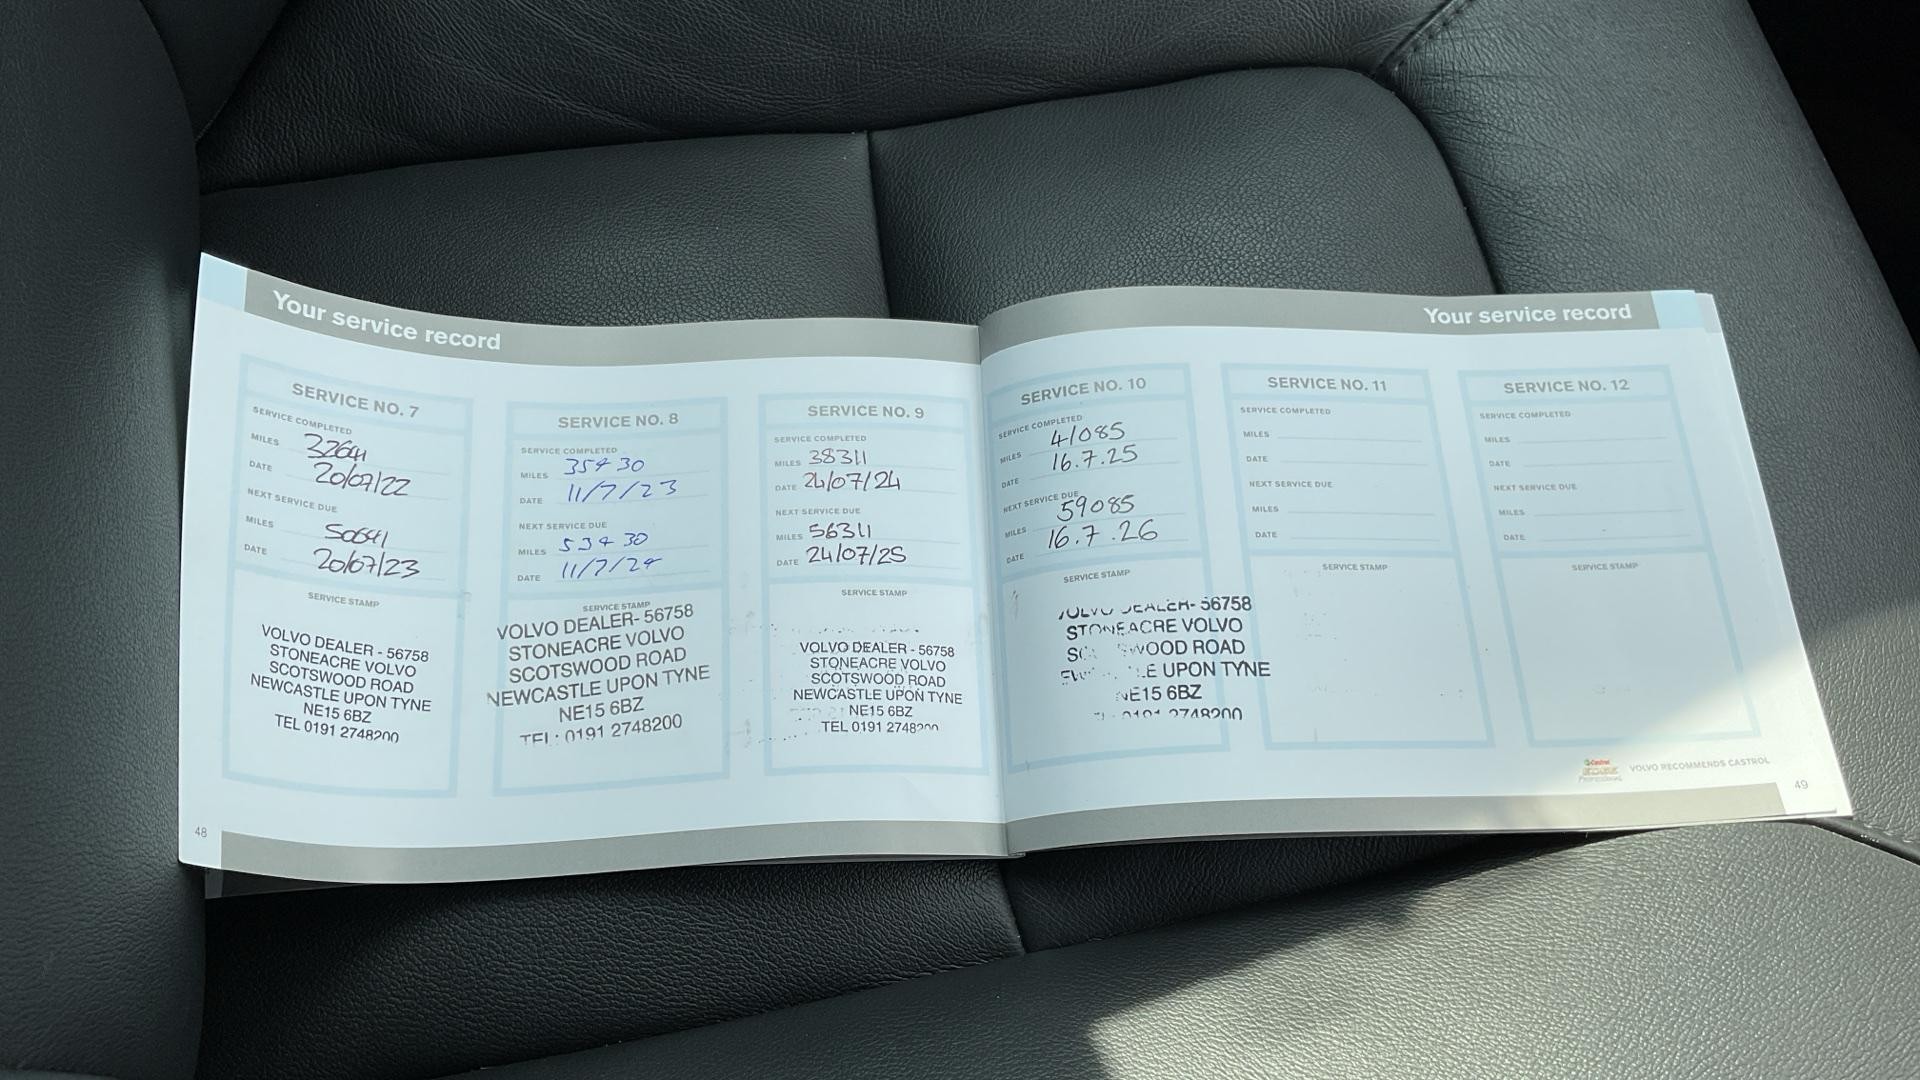 Your service record
SERVICE NO. 7
SERVICE COMPLETED
MILES 32641
DATE 20/07/22
NEXT SERVICE DUE
MILES 50641
DATE 20/07/23
SERVICE STAMP
VOLVO DEALER - 56758
STONEACRE VOLVO
SCOTSWOOD ROAD
NEWCASTLE UPON TYNE
NE15 6BZ
TEL 0191 2748200
SERVICE NO. 8
SERVICE COMPLETED
MILES 35430
DATE 11/7/23
NEXT SERVICE DUE
MILES 53430
DATE 11/7/24
SERVICE STAMP
VOLVO DEALER- 56758
STONEACRE VOLVO
SCOTSWOOD ROAD
NEWCASTLE UPON TYNE
NE15 6BZ
TEL: 0191 2748200
SERVICE NO. 9
SERVICE COMPLETED
MILES 38311
DATE 24/07/24
NEXT SERVICE DUE
MILES 56311
DATE 24/07/25
SERVICE STAMP
VOLVO DEALER - 56758
STONEACRE VOLVO
SCOTSWOOD ROAD
NEWCASTLE UPON TYNE
NE15 6BZ
TEL 0191 2748200
48
Your service record
SERVICE NO. 10
SERVICE COMPLETED
MILES 41085
DATE 16.7.25
NEXT SERVICE DUE
MILES 59085
DATE 16.7.26
SERVICE STAMP
VOLVO DEALER- 56758
STONEACRE VOLVO
WOOD ROAD
UPON TYNE
NE15 6BZ
0191 2748200
SERVICE NO. 11
SERVICE COMPLETED
MILES
DATE
NEXT SERVICE DUE
MILES
DATE
SERVICE STAMP
SERVICE NO. 12
SERVICE COMPLETED
MILES
DATE
NEXT SERVICE DUE
MILES
DATE
SERVICE STAMP
Castrol
EDGE
Professional
VOLVO RECOMMENDS CASTROL
49